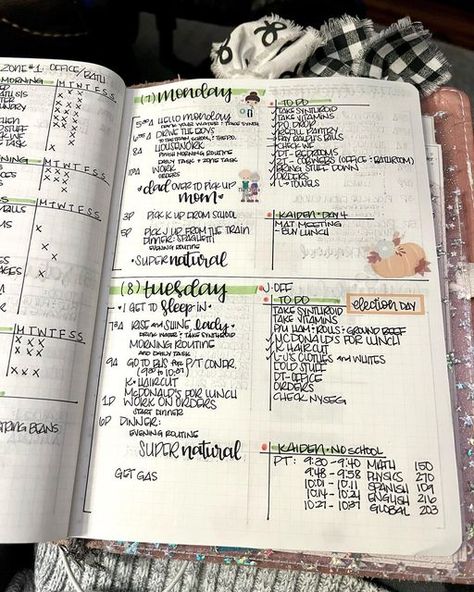 ZONE #1 OFFICE/BATH
MORNING MTWTFSS
(7) monday
HELLO monday
DRINK YOUR WATER: TAKE SYNTHR
6:45A DRIVE THE BOYS
8A HOUSEWORK
FINISH MORNING ROUTINE
DAILY TASK + ZONE TASK
10A WORK
ORDERS
dad OVER TO PICK UP
mom
3P PICK K UP FROM SCHOOL
5P PICK J UP FROM THE TRAIN
DINNER: SPAGHETTI
EVENING ROUTINE
SUPERnatural
TO DO
TAKE SYNTHROID
TAKE VITAMINS
PO DROP
REFILL PANTRY
PAY RALPH'S BILLS
CHECK WF
DT: BEDROOMS
BR: CORNERS (OFFICE: BATHROOM)
BRING STUFF DOWN
ORDERS
L: TOWELS
KAIDEN: DAY 4
MAT MEETING
BUY LUNCH
MTWTFSS
(8) tuesday
I GET TO sleep IN
7:45A RISE AND SHINE, Lady
DRINK WATER: TAKE SYNTHROID
MORNING ROUTINE
AND DAILY TASK
9A GO TO BUS FOR P/T CONFER.
(9:20 TO 10:37)
K: HAIRCUT
McDONALD'S FOR LUNCH
1P WORK ON ORDERS
START DINNER
6P DINNER:
EVENING ROUTINE
SUPERnatural
GET GAS
J-OFF
TO DO
election DAY
TAKE SYNTHROID
TAKE VITAMINS
P/U HAM: ROLLS: GROUND BEEF
McDONALD'S FOR LUNCH
K HAIRCUT
L: J'S CLOTHES AND WHITES
FOLD STUFF
DT-OFFICE
ORDERS
CHECK NYSEG
KAIDEN: NO SCHOOL
PT: 9:30 - 9:40 MATH 150
9:48 - 9:58 PHYSICS 270
10:01 - 10:11 SPANISH 109
10:14 - 10:24 ENGLISH 216
10:27 - 10:37 GLOBAL 203
MTWTFSS
STRING BEANS